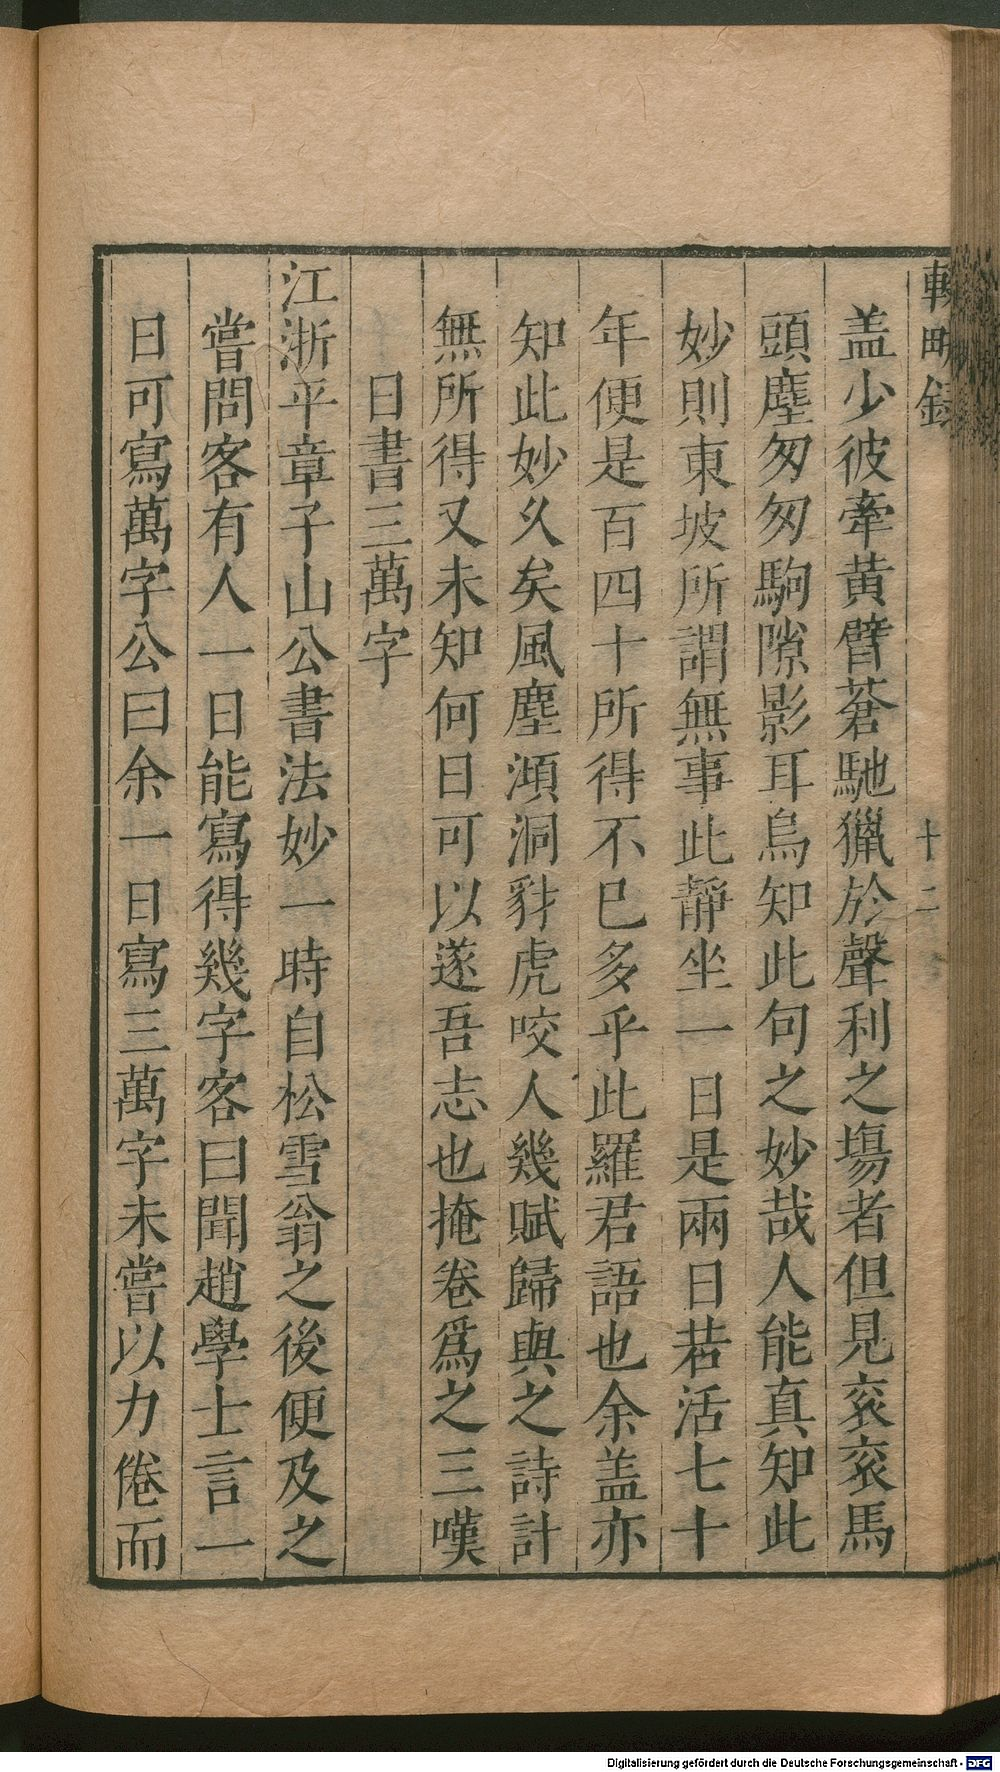 輟畊錄
十二
盖少彼牽黄臂蒼馳獵於聲利之塲者但見衮衮馬
頭塵匆匆駒隙影耳烏知此句之妙哉人能真知此
妙則東坡所謂無事此靜坐一日是兩日若活七十
年便是百四十所得不巳多乎此羅君語也余盖亦
知此妙久矣風塵澒洞豺虎咬人幾賦歸與之詩計
無所得又未知何日可以遂吾志也掩卷爲之三嘆
日書三萬字
江浙平章子山公書法妙一時自松雪翁之後便及之
嘗問客有人一日能寫得幾字客曰聞趙學士言一
日可寫萬字公曰余一日寫三萬字未嘗以力倦而
Digitalisierung gefördert durch die Deutsche Forschungsgemeinschaft - DFG